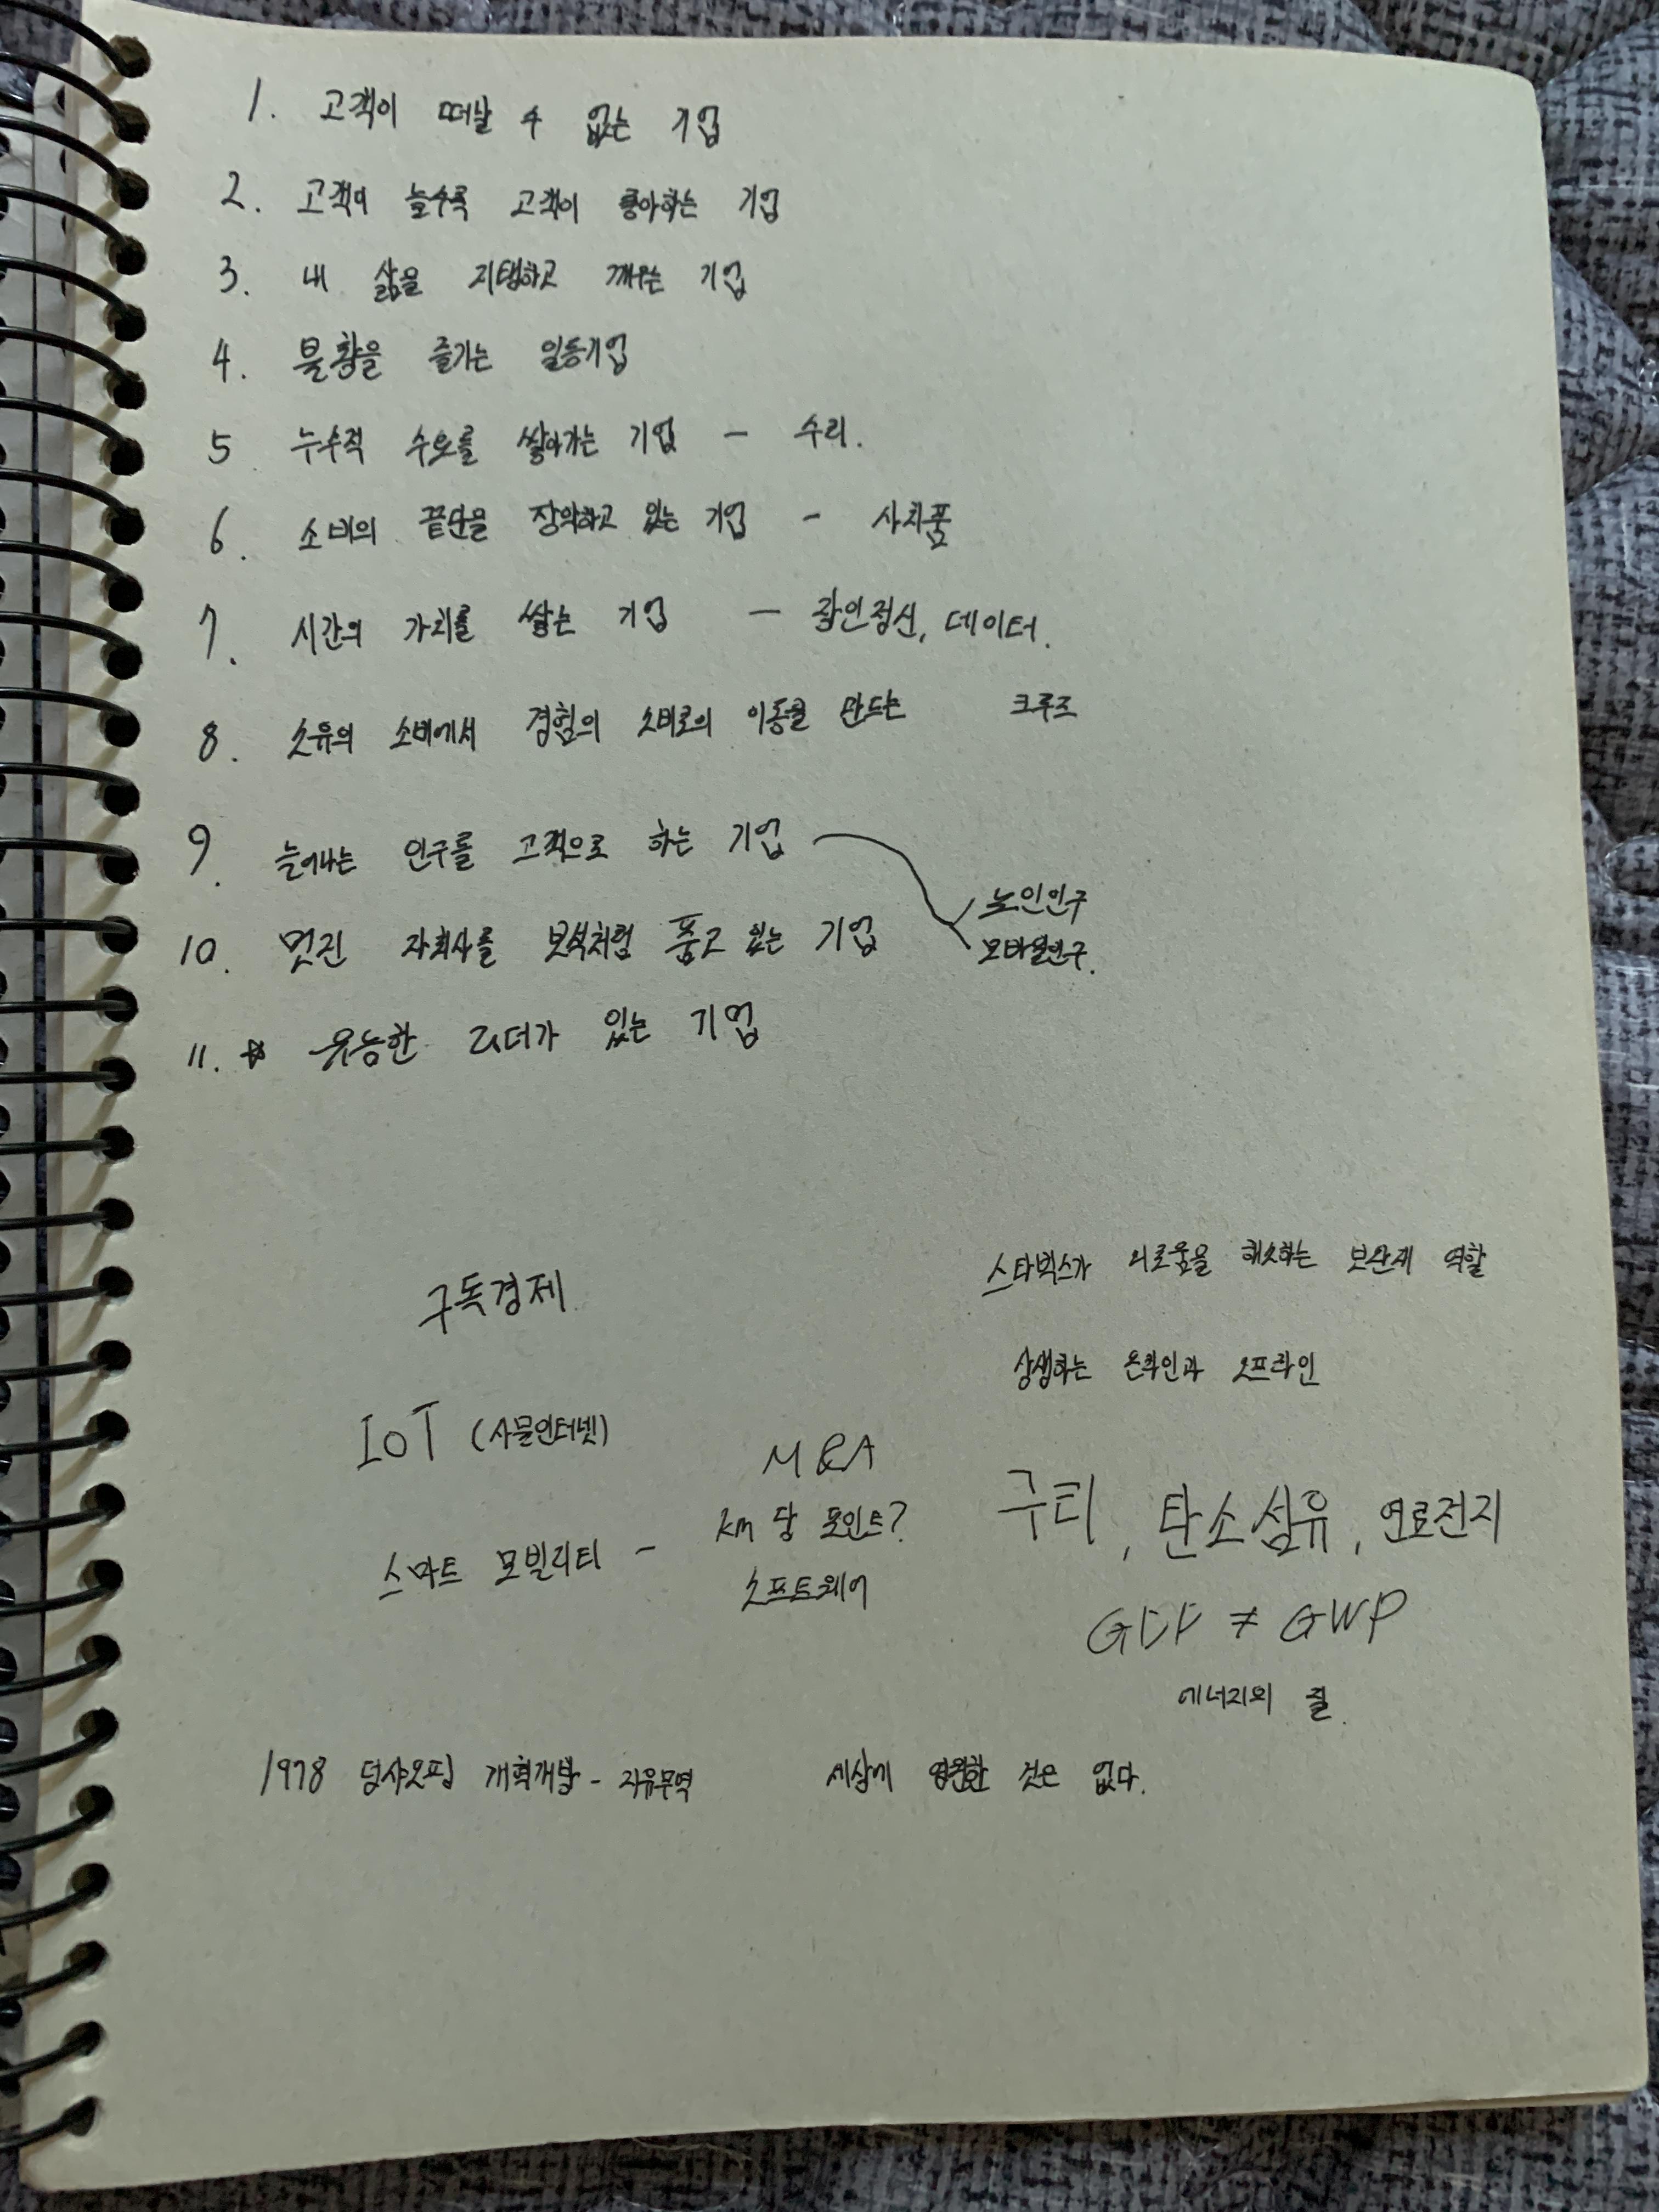 1. 고객이 떠날 수 없는 기업
2. 고객이 늘수록 고객이 좋아하는 기업
3. 내 삶을 지탱하고 깨우는 기업
4. 불황을 즐기는 일등기업
5. 누수적 수요를 쌓아가는 기업 - 수리.
6. 소비의 끝단을 장악하고 있는 기업 - 사치품
7. 시간의 가치를 쌓는 기업 - 장인정신, 데이터.
8. 소유의 소비에서 경험의 소비로의 이동을 만드는 크루즈
9. 늘어나는 인구를 고객으로 하는 기업
노인인구
모바일인구.
10. 멋진 자회사를 보석처럼 품고 있는 기업
11. ☆ 유능한 리더가 있는 기업
스타벅스가 외로움을 해소하는 보완재 역할
구독경제
상생하는 온라인과 오프라인
IoT (사물인터넷)
M&A
스마트 모빌리티 -
km 당 포인트?
소프트웨어
구티, 탄소섬유, 연료전지
≠ GWP
에너지의 질.
1978 덩샤오핑 개혁개방 - 자유무역
세상에 영원한 것은 없다.